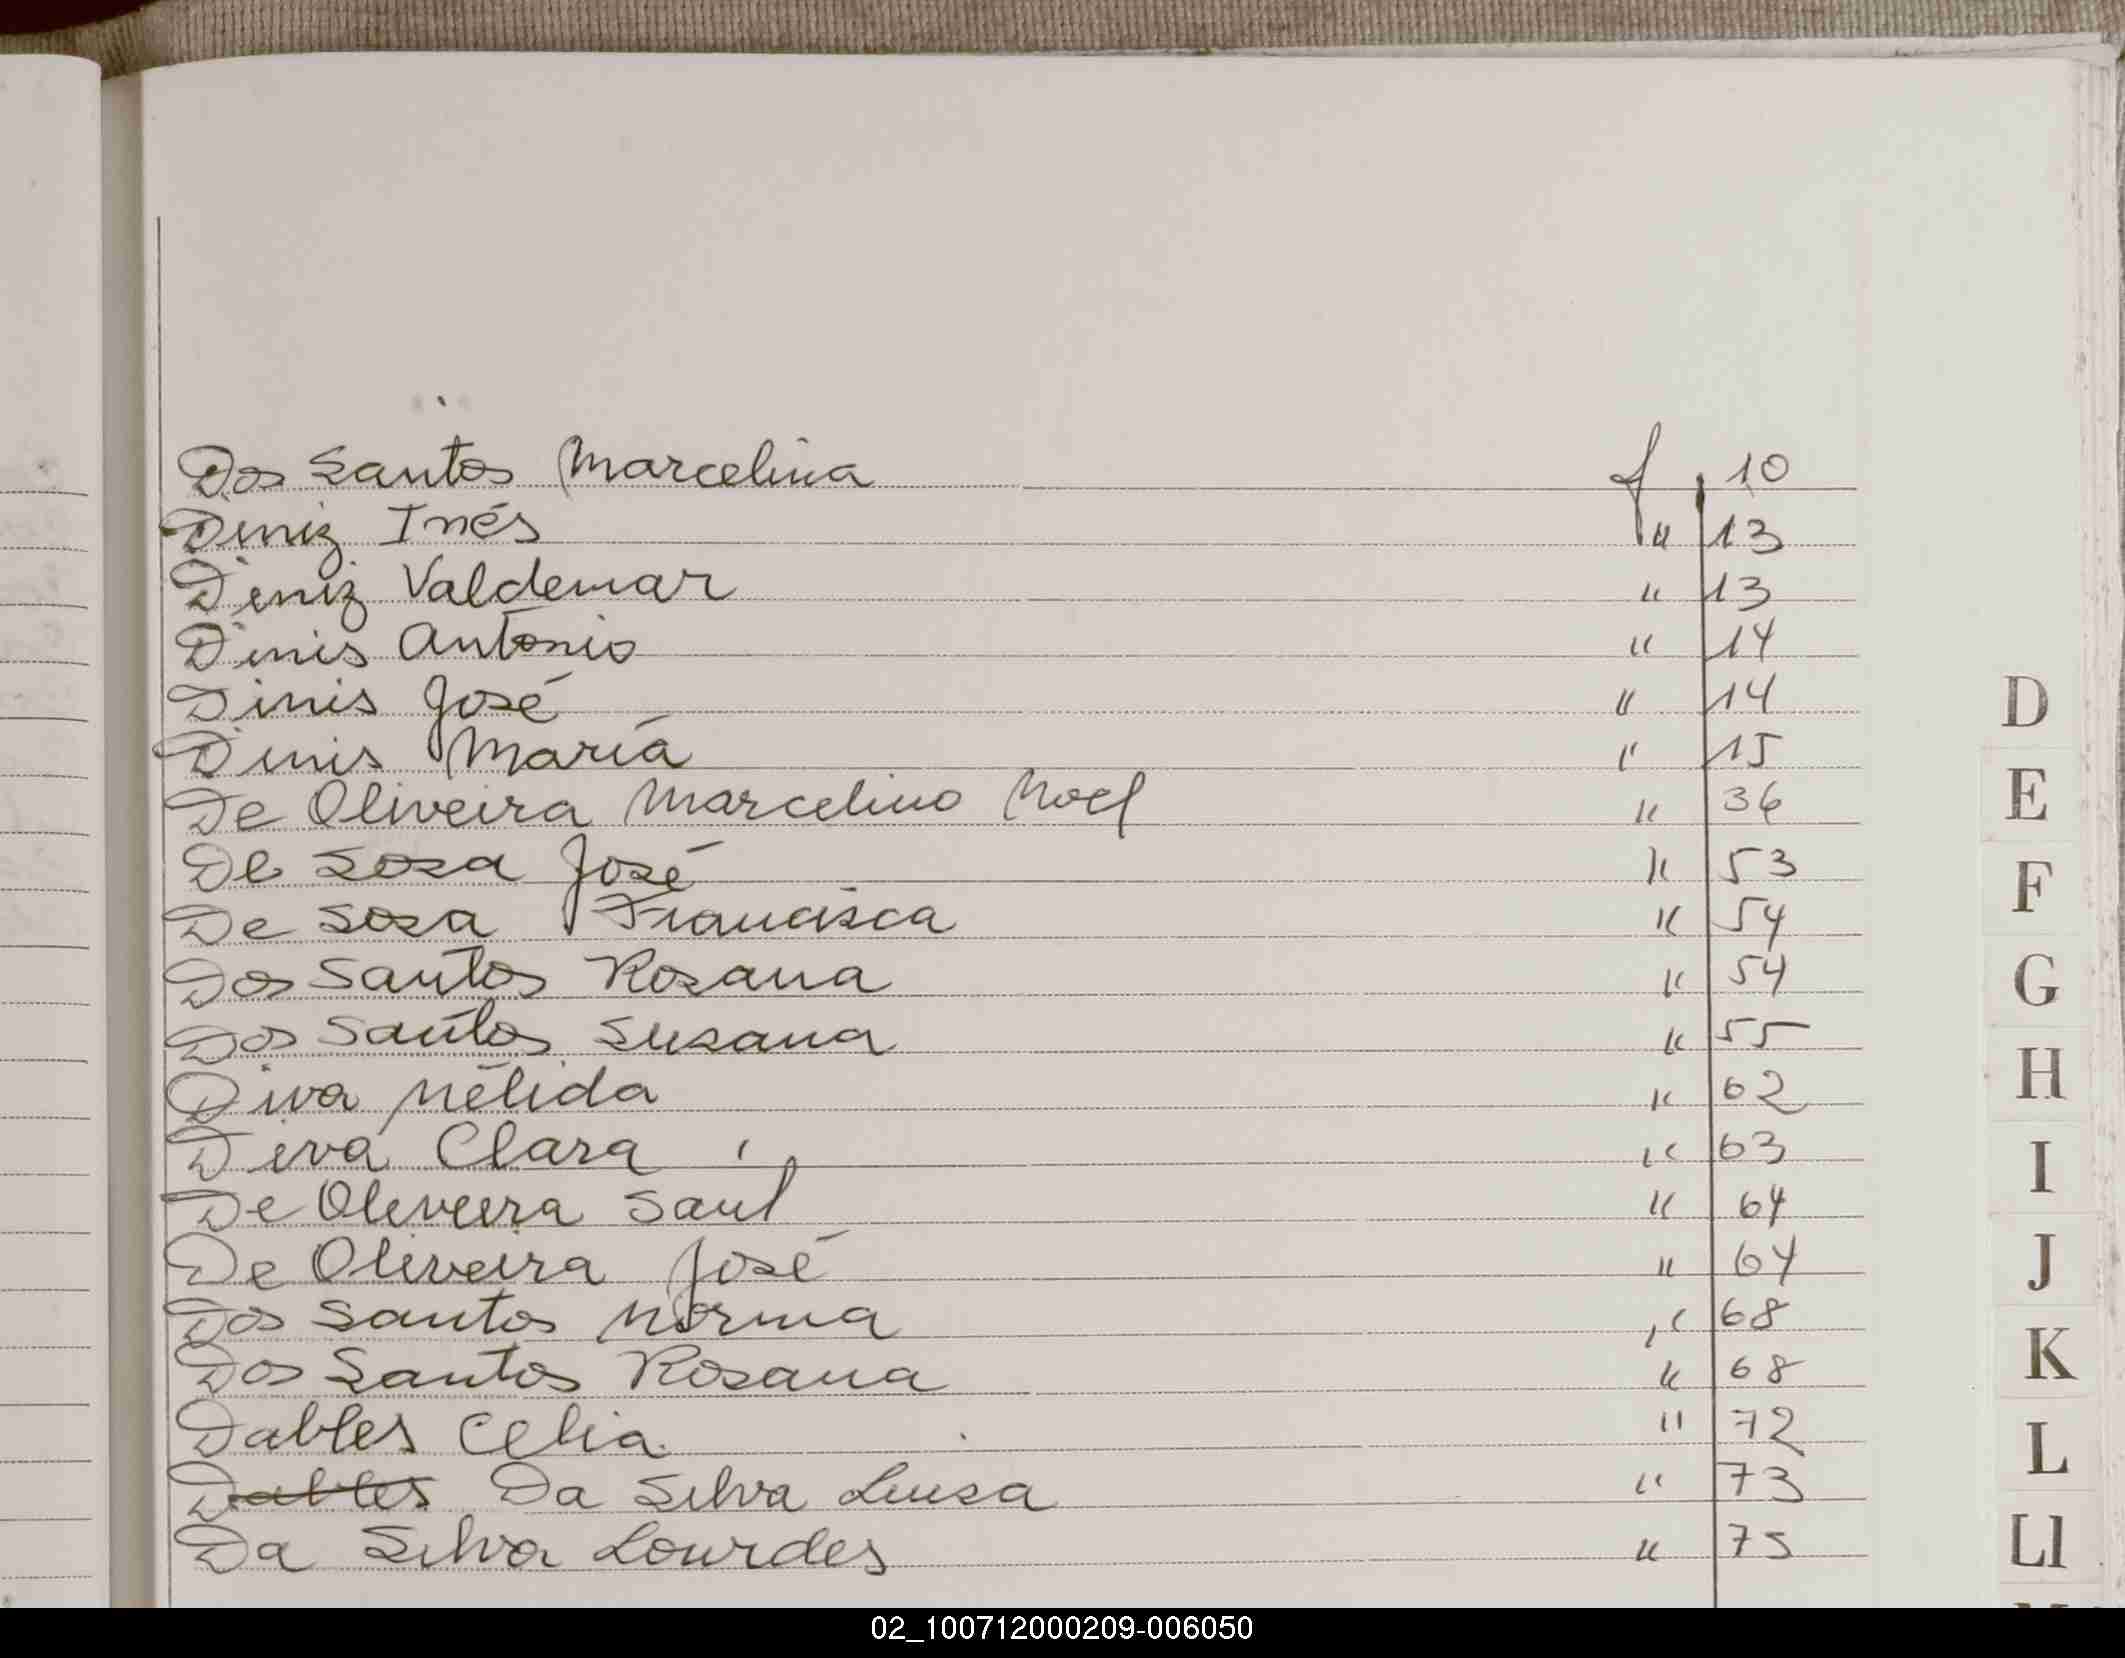 Dos Santos Marcelina f. 10
Diniz Inés " 13
Diniz Valdemar " 13
Dinis Antonio " 14
Dinis José " 14
Dinis María " 15
De Oliveira Marcelino Noel " 36
De Sosa José " 53
De Sosa Francisca " 54
Dos Santos Rosana " 54
Dos Santos Susana " 55
Diva Nélida " 62
Diva Clara " 63
De Oliveira Saul " 64
De Oliveira José " 64
Dos Santos Norma " 68
Dos Santos Rosana " 68
Dables Celia " 72
Dables Da Silva Luisa " 73
Da Silva Lourdes " 75
D
E
F
G
H
I
J
K
L
Ll
02_100712000209-006050